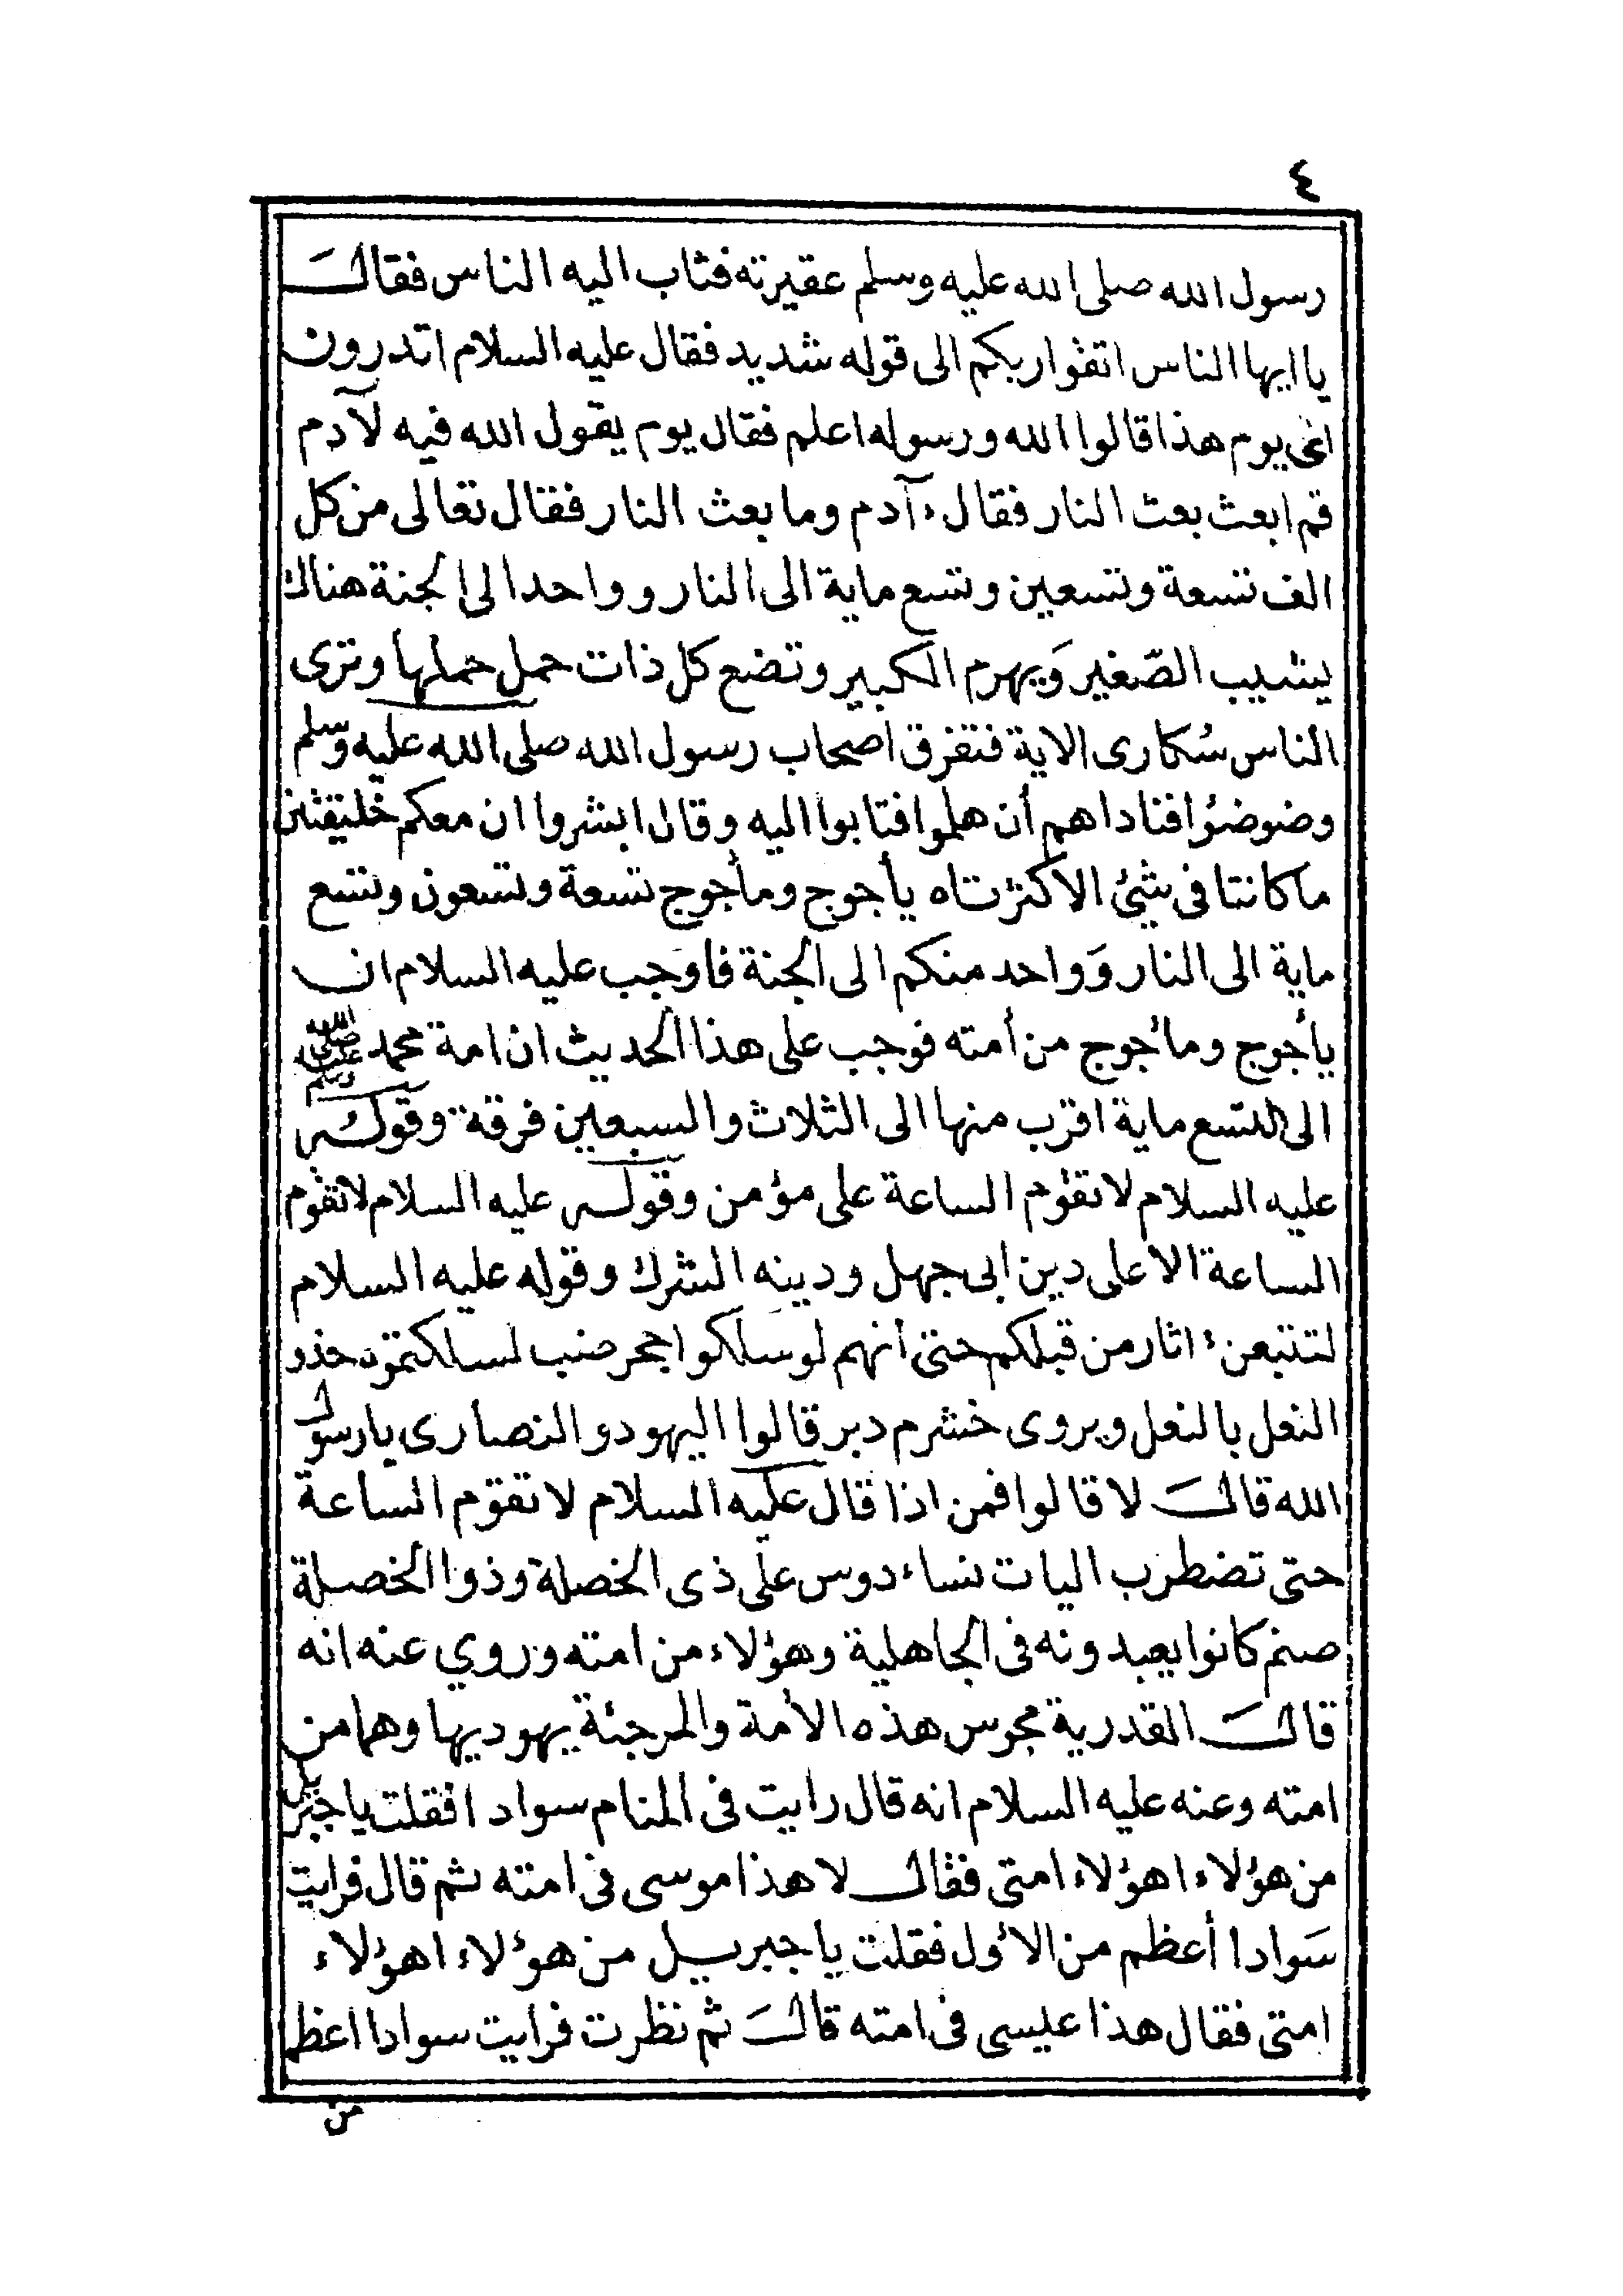 ٤
رسول الله صلى الله عليه وسلم عقيرته فثاب اليه الناس فقال
يا ايها الناس اتقوا ربكم الى قوله شديد فقال عليه السلام اتدرون
اى يوم هذا قالوا الله ورسوله اعلم فقال يوم يقول الله فيه لآدم
قم ابعث بعث النار فقال ءآدم وما بعث النار فقال تعالى من كل
الف تسعة وتسعين وتسع ماية الى النار وواحدا الى الجنة هناك
يشيب الصّغير وَيهرم الكبير وتضع كل ذات حمل حملها وترى
الناس سُكارى الاية فتفرق اصحاب رسول الله صلى الله عليه وسلم
وضوضؤا فناداهم أن هلموا فتابوا اليه وقال ابشروا ان معكم خليقتين
ما كانتا فى شيئ الا كثرتاه يأجوج ومأجوج تسعة وتسعون وتسع
ماية الى النار وَواحد منكم الى الجنة فاوجب عليه السلام ان
يأجوج ومأجوج من أمته فوجب على هذا الحديث ان امة محمد صلى الله عليه وسلم
الى التسع ماية اقرب منها الى الثلاث والسبعين فرقة وقوله
عليه السلام لا تقوم الساعة على مؤمن وقوله عليه السلام لا تقوم
الساعة الا على دين ابى جهل ودينه الشرك وقوله عليه السلام
لتتبعن ءاثار من قبلكم حتى أنهم لو سلكوا جحر ضب لسلكتموه حذو
النعل بالنعل ويروى خشرم دبر قالوا اليهود والنصارى يا رسول
الله قال لا قالوا فمن اذا قال عليه السلام لا تقوم الساعة
حتى تضطرب اليات نساء دوس على ذى الخصلة وذوا الخصلة
صنم كانوا يعبدونه فى الجاهلية وهؤلاء من امته وروي عنه انه
قال القدرية مجوس هذه الأمة والمرجئة يهوديها وهما من
امته وعنه عليه السلام انه قال رايت فى المنام سوادا فقلت يا جبريل
من هؤلاء اهؤلاء امتى فقال لا هذا موسى فى امته ثم قال فرايت
سَوادا أعظم من الأول فقلت يا جبريل من هؤلاء اهؤلاء
امتى فقال هذا عيسى فى امته قال ثم نظرت فرايت سوادا اعظم
من